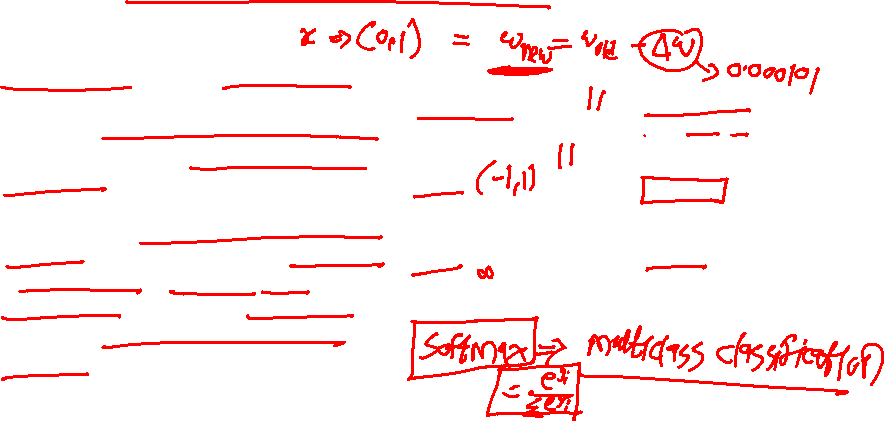 x => (0,1) = w_new = w_old - Δw → 0.000101
||
(-1,1) ||
∞
Softmax => multiclass classification
= e^xi / Σ e^xi